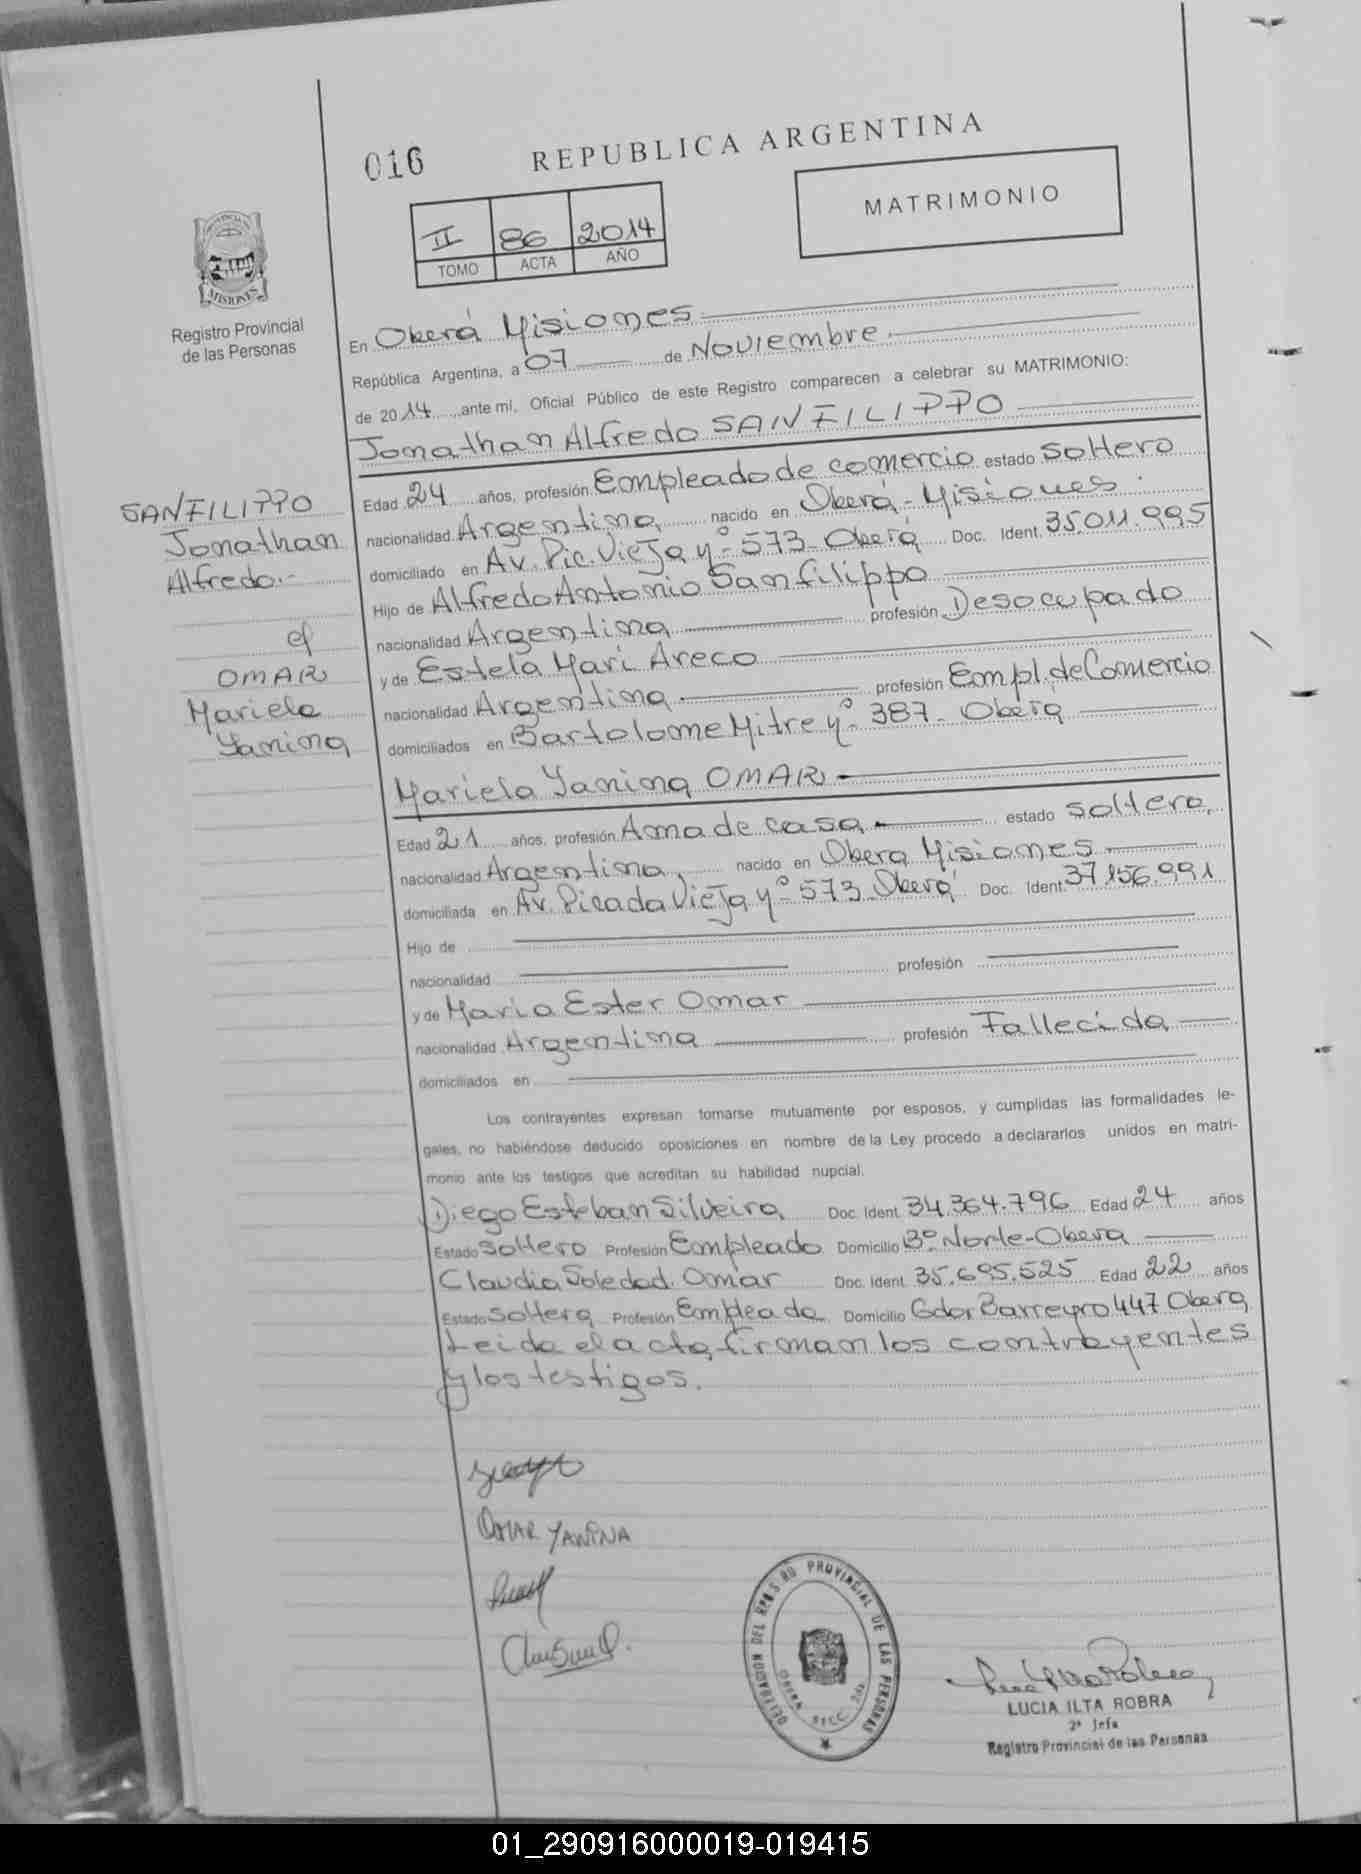 016
REPUBLICA ARGENTINA
MATRIMONIO
II 86 2014
TOMO ACTA AÑO
PROVINCIA
MISIONES
Registro Provincial
de las Personas
En Oberá Misiones
República Argentina, a 07 de Noviembre
de 2014 ante mí, Oficial Público de este Registro comparecen a celebrar su MATRIMONIO:
Jonathan Alfredo SANFILIPPO
SANFILIPPO
Jonathan
Alfredo.-
OMAR
Mariela
Yanina
Edad 24 años, profesión Empleado de comercio estado soltero
nacionalidad Argentina nacido en Oberá - Misiones.
domiciliado en Av. Pic. Vieja Nº 573 - Oberá Doc. Ident. 35.011.995
Hijo de Alfredo Antonio Sanfilippo
nacionalidad Argentina profesión Desocupado
y de Estela Mari Areco
nacionalidad Argentina profesión Empl. de Comercio
domiciliados en Bartolome Mitre Nº 387 - Oberá
Mariela Yanina OMAR
Edad 21 años, profesión Ama de casa estado soltera,
nacionalidad Argentina, nacido en Obera Misiones
domiciliada en Av. Picada Vieja Nº 573 Oberá Doc. Ident. 37.156.991
Hijo de
nacionalidad profesión
y de Maria Ester Omar
nacionalidad Argentina profesión Fallecida
domiciliados en
Los contrayentes expresan tomarse mutuamente por esposos, y cumplidas las formalidades le-
gales, no habiéndose deducido oposiciones en nombre de la Ley procedo a declararlos unidos en matri-
monio ante los testigos que acreditan su habilidad nupcial.
Diego Esteban Silveira Doc. Ident. 34.364.796 Edad 24 años
Estado soltero Profesión Empleado Domicilio Bº Norte - Obera
Claudia Soledad Omar Doc. Ident. 35.695.525 Edad 22 años
Estado soltera Profesión Empleada Domicilio Gdor Barreyro 447 Obera
Leida el acta, firman los contrayentes
y los testigos.
OMAR YANINA
DELEGACION DEL REGISTRO PROVINCIAL DE LAS PERSONAS
OBERA SECC.
LUCIA ILTA ROBRA
2ª Jefa
Registro Provincial de las Personas
01_290916000019-019415